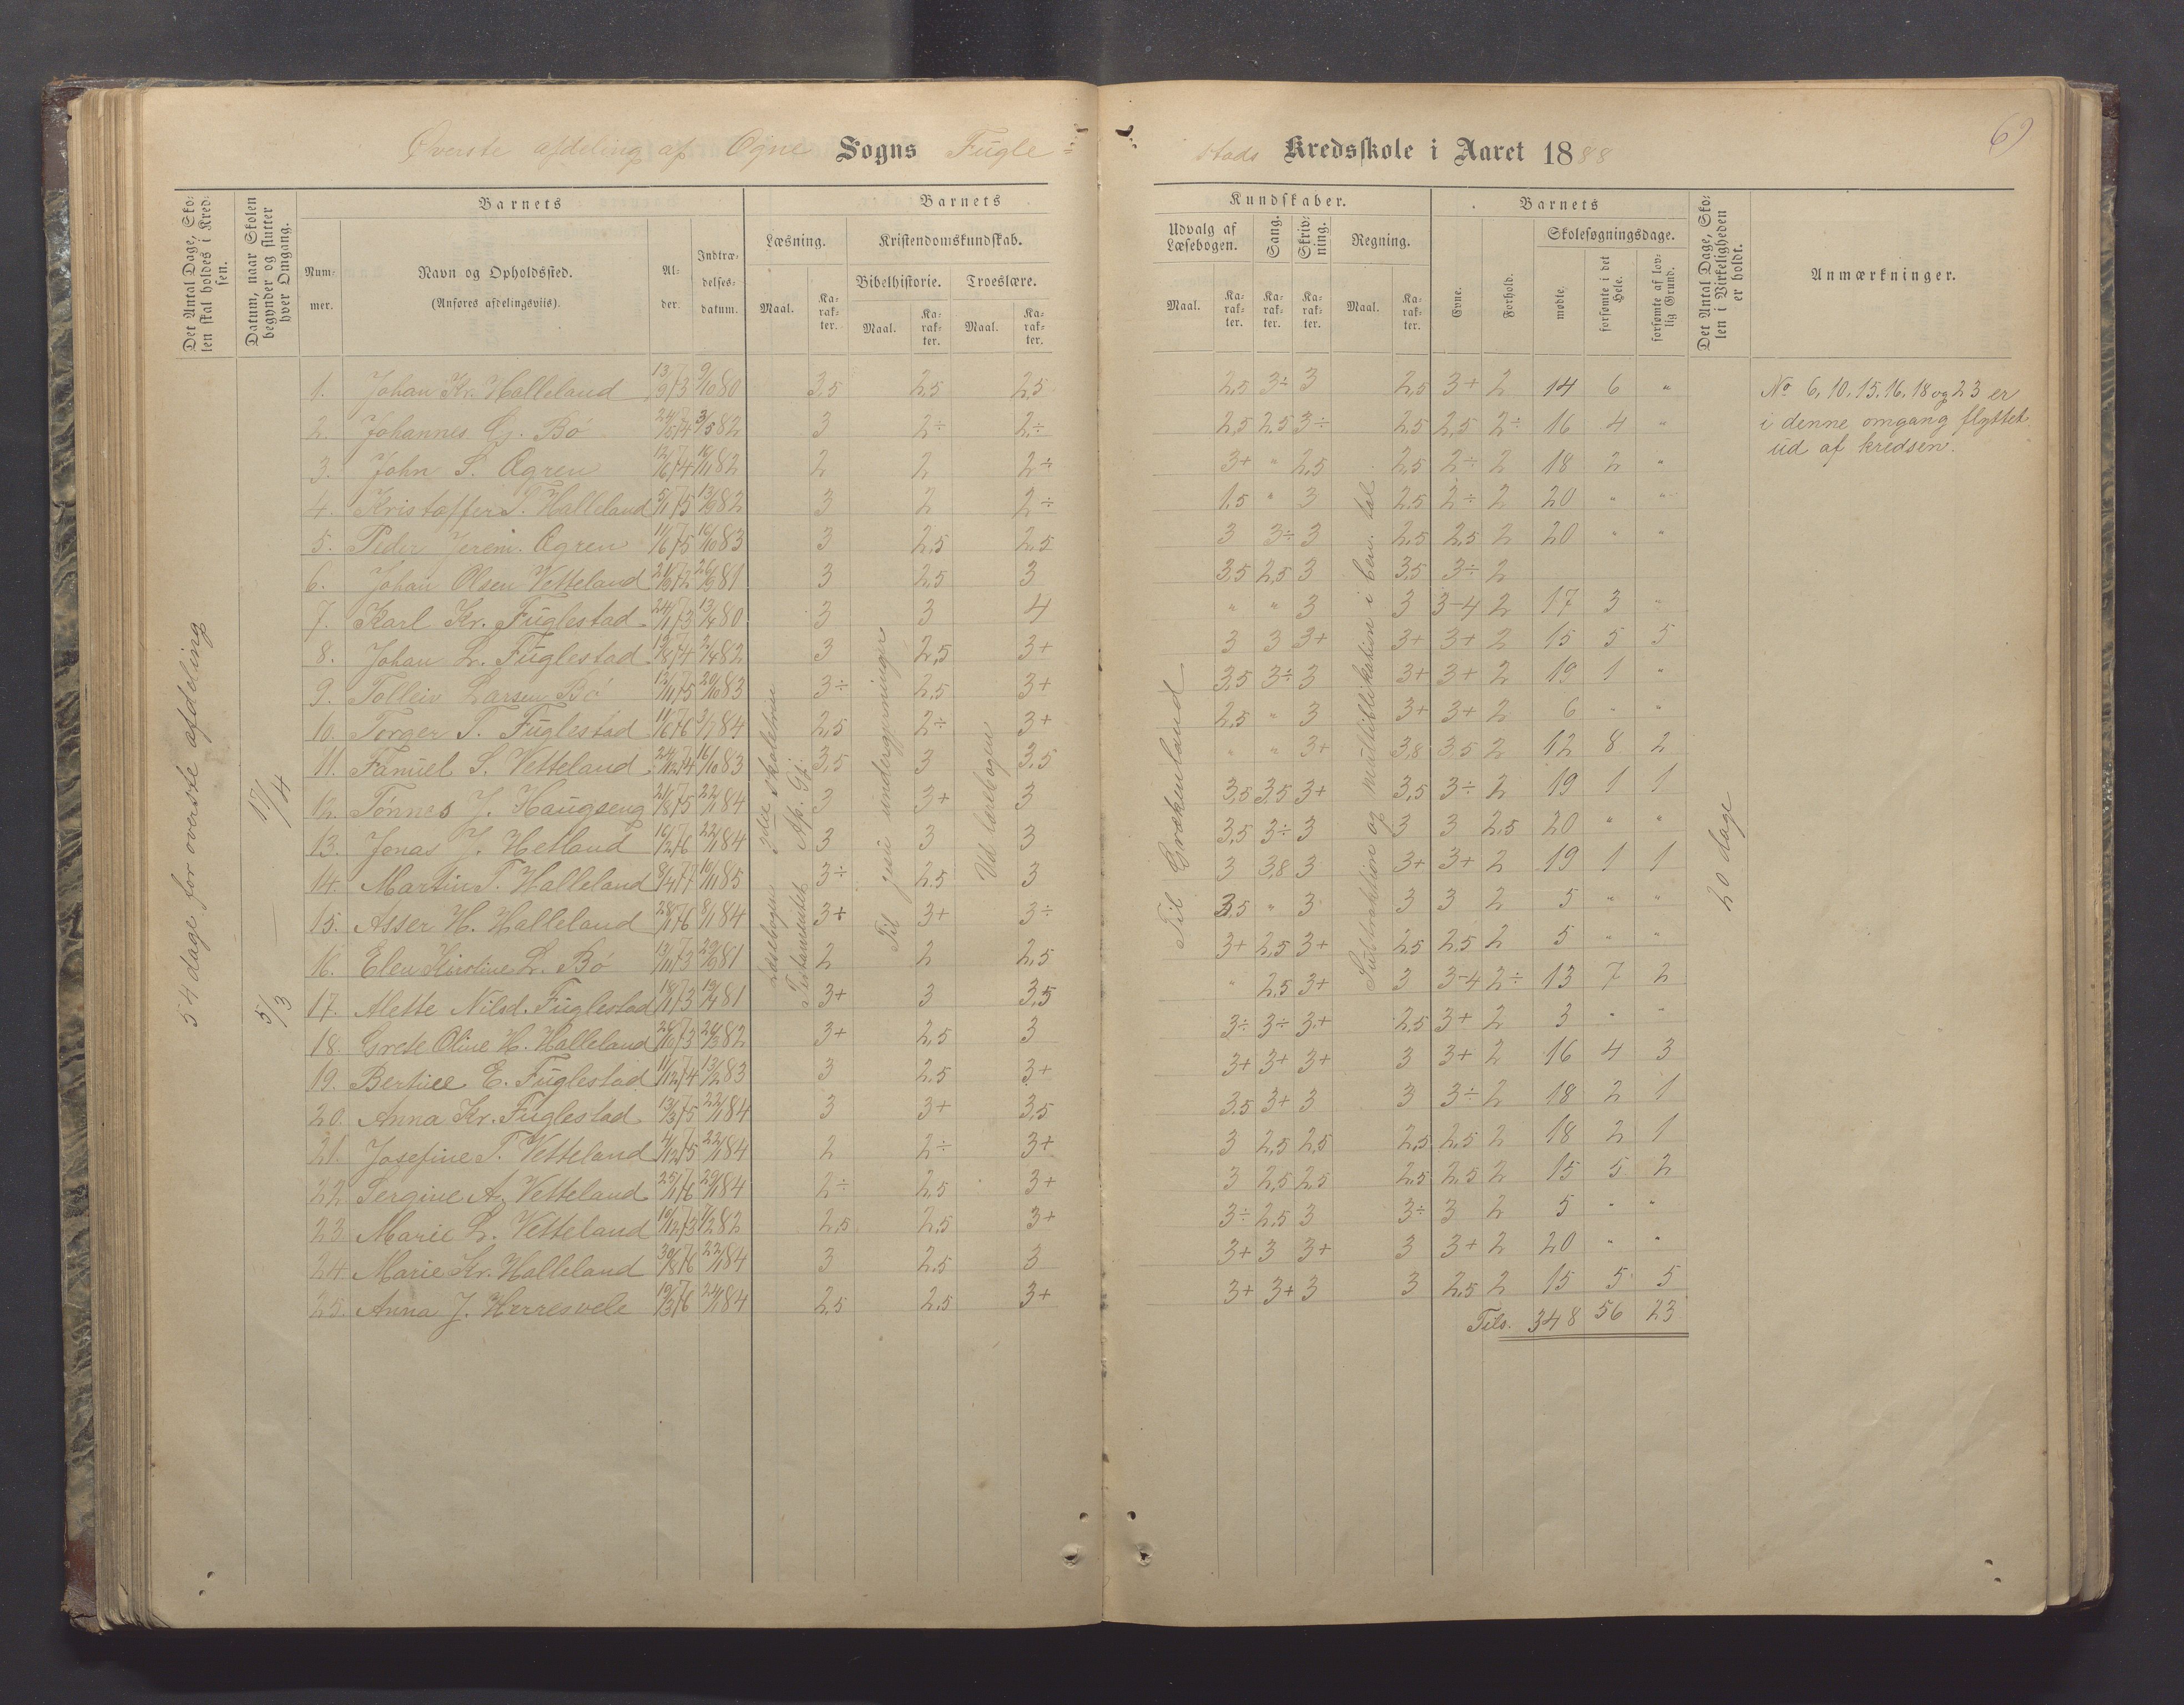 Øverste afdeling af Ogne Sogns Fugle-
stads Kredsskole i Aaret 1888
69
Det Antal Dage, Skolen skal holdes i Kredsen.
Datum, naar Skolen begynder og slutter hver Omgang.
Barnets
Nummer.
Navn og Opholdssted.
(Anføres afdelingsviis).
Alder.
Indtrædelsesdatum.
Barnets
Læsning.
Kristendomskundskab.
Bibelhistorie. Troeslære.
Maal. Karakter. Maal. Karakter. Maal. Karakter.
Kundskaber.
Udvalg af Læsebogen. Sang. Skrivning. Regning.
Maal. Karakter. Karakter. Karakter. Maal. Karakter.
Barnets
Evne. Forhold.
Skolesøgningsdage.
mødte. forsømte i det Hele. forsømte af lovlig Grund.
Det Antal Dage, Skolen i Virkeligheden er holdt.
Anmærkninger.
54 dage for øverste afdeling
5/3 — 17/4
Til Grækenland
Subtraktion og multiblikation i ben. tal
20 dage
1. Johan Kr. Halleland 13/9 73 9/10 80 3,5 2,5 2,5 2,5 3÷ 3 2,5 3+ 2 14 6 "
2. Johannes G. Bø 24/5 74 3/5 82 3 2÷ 2÷ 2,5 2,5 3÷ 2,5 2,5 2÷ 16 4 "
3. John S. Ogren 2 2 2÷ 3+ " 2,5 2,5 2÷ 2 18 2 "
4. Kristoffer T. Halleland 3 2 2÷ 1,5 " 3 2,5 2÷ 2 20 " "
5. Peder Jerem. Ogren 11/6 75 16/10 83 3 2,5 2,5 3 3÷ 3 2,5 2,5 2 20 " "
6. Johan Olsen Vetteland 3 2,5 3 3,5 2,5 3 3,5 3÷ 2
7. Karl Kr. Fuglestad 24/11 73 13/4 80 3 3 4 " " 3 3 3-4 2 17 3 "
8. Johan L. Fuglestad 3 2,5 3+ 3 3 3+ 3+ 3+ 2 15 5 5
9. Tolleiv Larsen Bø 12/11 75 20/10 83 3÷ 2,5 3+ 3,5 3÷ 3 3+ 3+ 2 19 1 "
10. Torger T. Fuglestad 2,5 2÷ 3+ 2,5 " 3 3+ 3+ 2 6 " "
11. Samuel S. Vetteland 24/12 74 16/10 83 3,5 3 3,5 " " 3+ 3,8 3,5 2 12 8 2
12. Tønnes J. Haugseng 21/8 75 22/1 84 3 3+ 3 3,5 3,5 3+ 3,5 3÷ 2 19 1 1
13. Jonas J. Hetland 16/2 76 22/1 84 3 3 3 3,5 3÷ 3 3 3 2,5 20 " "
14. Martin T. Halleland 8/4 77 10/11 85 3÷ 2,5 3 3 3,8 3 3+ 3+ 2 19 1 1
15. Asser H. Halleland 28/1 76 8/1 84 3+ 3+ 3÷ 3,5 " 3 3 3 2 5 " "
16. Elen Kirstine L. Bø 2 2 2,5 3+ 2,5 3+ 2,5 2,5 2 5 " "
17. Alette Nilsd. Fuglestad 3+ 3 3,5 " 2,5 3+ 3 3-4 2÷ 13 7 2
18. Grete Oline H. Halleland 3+ 2,5 3 3÷ 3÷ 3+ 2,5 3+ 2 3 " "
19. Bertine E. Fuglestad 11/12 74 13/2 83 3 2,5 3+ 3+ 3+ 3+ 3 3+ 2 16 4 3
20. Anna Kr. Fuglestad 13/3 75 22/1 84 3 3+ 3,5 3,5 3+ 3 3 3÷ 2 18 2 1
21. Josefine T. Vetteland 4/12 75 22/1 84 2 2÷ 3+ 3 2,5 2,5 2,5 2,5 2 18 2 1
22. Tergine A. Vetteland 25/1 76 29/1 84 2÷ 2,5 3+ 3 2,5 2,5 2,5 2,5 2 15 5 2
23. Marie L. Vetteland 2,5 2,5 3+ 3÷ 2,5 3 3÷ 3 2 5 " "
24. Marie Kr. Halleland 30/8 76 22/1 84 3 2,5 3 3+ 3 3+ 3 3+ 2 20 " "
25. Anna J. Herresvele 19/3 76 22/1 84 2,5 2,5 3+ 3+ 3+ 3 3 2,5 2 15 5 5
Tils. 348 56 23
Læsebogen 3die skoletrin
Testamentet Ap. Gj.
Til jesu undergjerninger
Ud lærebogen
No 6, 10, 15, 16, 18 og 23 er
i denne omgang flyttet
ud af kredsen.